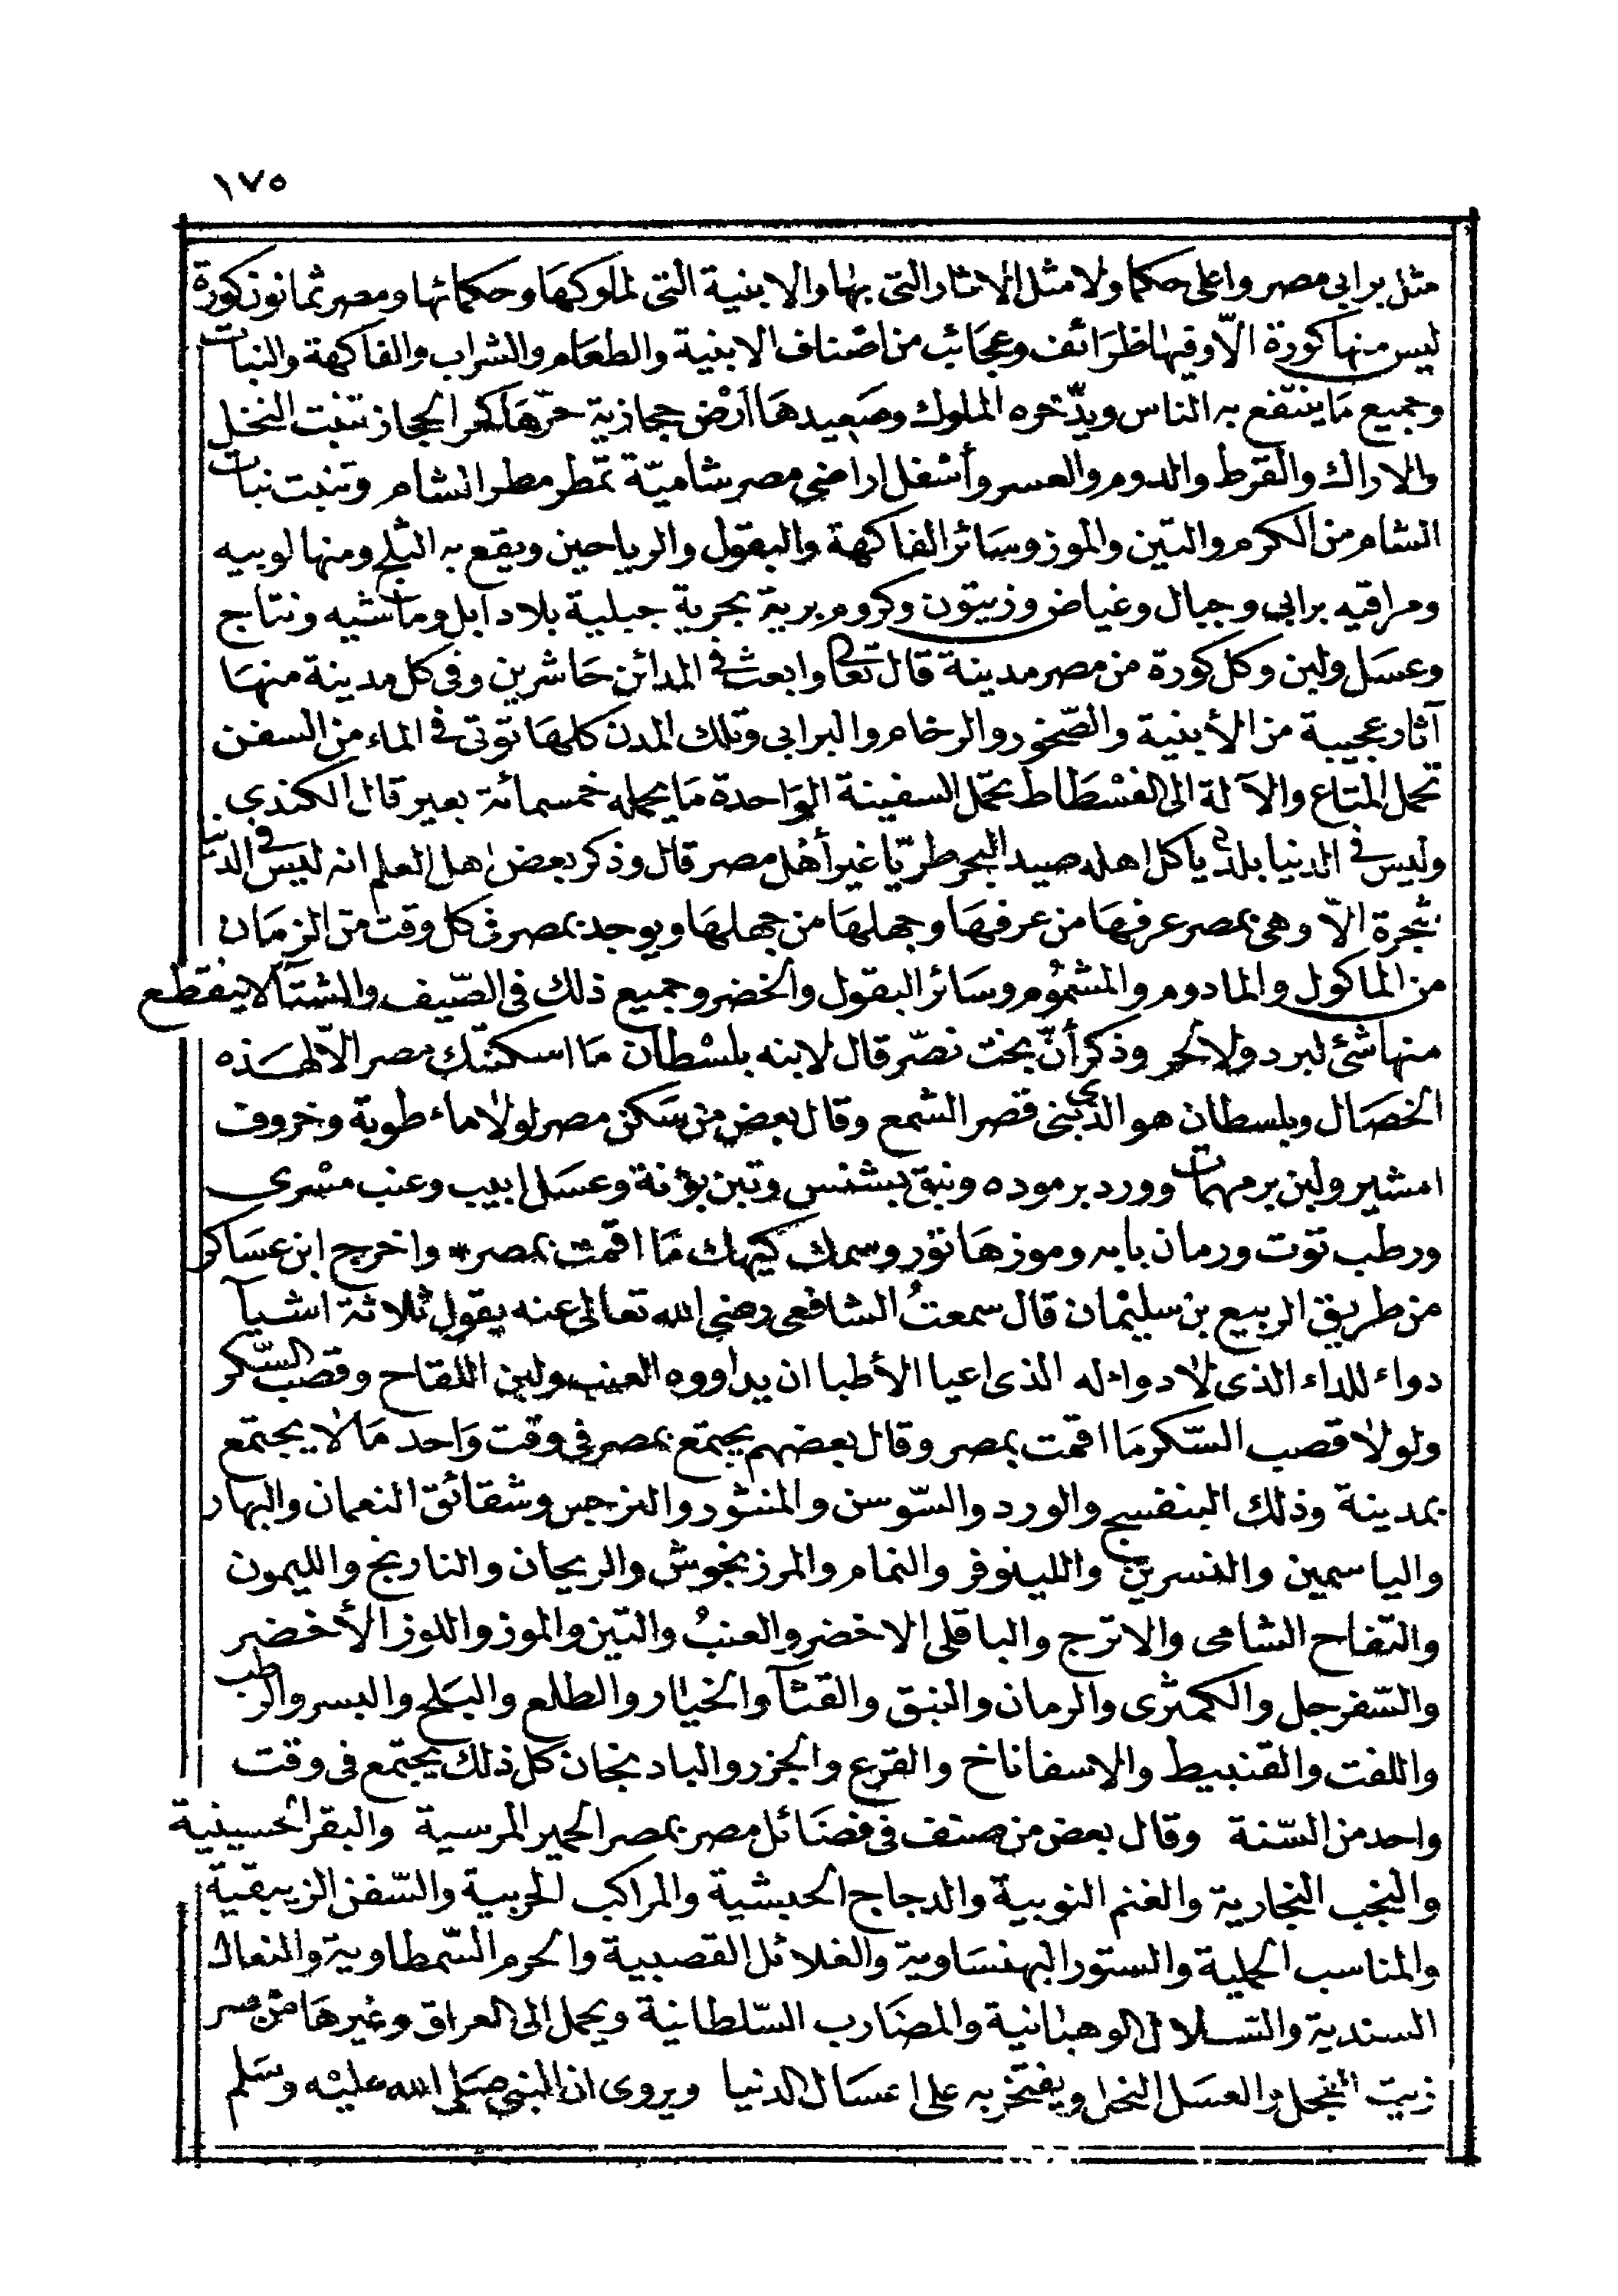 ١٧٥
مثل برابي مصر واعلى حكما ولا مثل الاثار التي بها والابنية التي لملوكها وحكمائها ومصر ثمانون كورة
ليس منها كورة الّا وفيها ظرَائف وعجَائب من اصْناف الابنية والطعَام والشراب والفاكهة والنبات
وجميع مَا ينتفع به الناس ويدّخره الملوك وصَعِيدهَا أرْض حجازية حرّهَا كحر الحجاز تنبت النخل
والاراك والقرط والدوم والعسر وأسْفل اراضي مصر شاميّة تمطر مطر الشام وتنبت نبات
الشام من الكرم والتين والموز وسَائر الفاكهة والبقول والرياحين ويقع به الثلج ومنها لوبيه
ومراقيه برابي وجبال وغياض وزيتون وكروم برية بحرية جبلية بلاد ابل وماشيه ونتاج
وعسَل ولبن وكل كورة من مصر مدينة قال تعالى وابعث في المدائن حَاشرين وفي كل مدينة منهَا
آثار عجيبة من الأبنية والصّخور والرخام والبرابي وتلك المدن كلهَا تؤتى في الماء من السفن
تحمل المتاع والآلة الى الفسْطَاط تحمل السفينة الوَاحدة مَا يحمله خمسمائة بعير قال الكندي
وليس في الدنيا بلد ياكل اهله صيد البحر طريّا غير أهْل مصر قال وذكر بعض اهل العلم انه ليسَ في الدنيا
شجرة الّا وهي بمصر عرفهَا من عرفهَا وجهلهَا من جهلهَا ويوجد بمصر في كل وقت من الزمَان
من الماكول والمادوم والمشمُوم وسَائر البقول والخضر وجميع ذلك في الصّيف والشتآ لا ينقطع
منها شئ لبرد ولا لحر وذكر أنّ بخت نصّر قال لابنه بلسْطان مَا اسكنتك مصر الّا لهَذه
الخصَال وبلسطان هو الذي بنى قصر الشمع وقال بعض من سَكن مصر لولا ماء طوبة وخروف
امشير ولبن برمهات وورد برموده ونبق بشنس وتين بؤنة وعسَل ابيب وعنب مسْرى
ورطب توت ورمان بابه وموز هَاتور وسمك كيهك مَا اقمت بمصر * واخرج ابن عسَاكر
من طريق الربيع بن سليْمان قال سمعتُ الشافعى رضي الله تعالى عنه يقول ثلاثة اشيآ
دواء للداء الذى لا دواء له الذى اعيا الأطبا ان يداووه العنب ولبن اللقاح وقصب السّكر
ولولا قصب السّكر مَا اقمت بمصر وقال بعضهم يجتمع بمصر في وقت وَاحد مَا لا يجتمع
بمدينة وذلك البنفسج والورد والسّوسن والمنثور والنرجس وشقائق النعمان والبهار
والياسمين والنسرين واللينوفر والنمام والمرزنجوش والريحان والنارنج والليمون
والتفاح الشامى والاترج والباقلى الاخضر والعنبُ والتين والموز واللوز الأخضر
والسّفرجل والكمثرى والرمان والنبق والقثآ والخيار والطلع والبَلح والبسر والرطب
واللفت والقنبيط والاسفاناخ والقرع والجزر والبادنجان كل ذلك يجتمع في وقت
واحد من السّنة وقال بعض من صنف في فضَائل مصر بمصر الحمير المرسية والبقر الخيسينية
والنجب النجارية والغنم النوبية والدجاج الحبشية والمراكب الحربية والسّفن الزيبقية
والمناسب الحلية والستور البهنسَاوية والغلائل القصبية والحرم السّمطاوية والنعال
السندية والتسلال الوهبانية والمضَارب السّلطانية ويحمل إلى العراق وغيرهَا من مصر
زيت الفجل والعسَل النحل ويفتخر به على اعسَال الدنيا ويروى ان النبي صَلى الله عليْه وسَلم